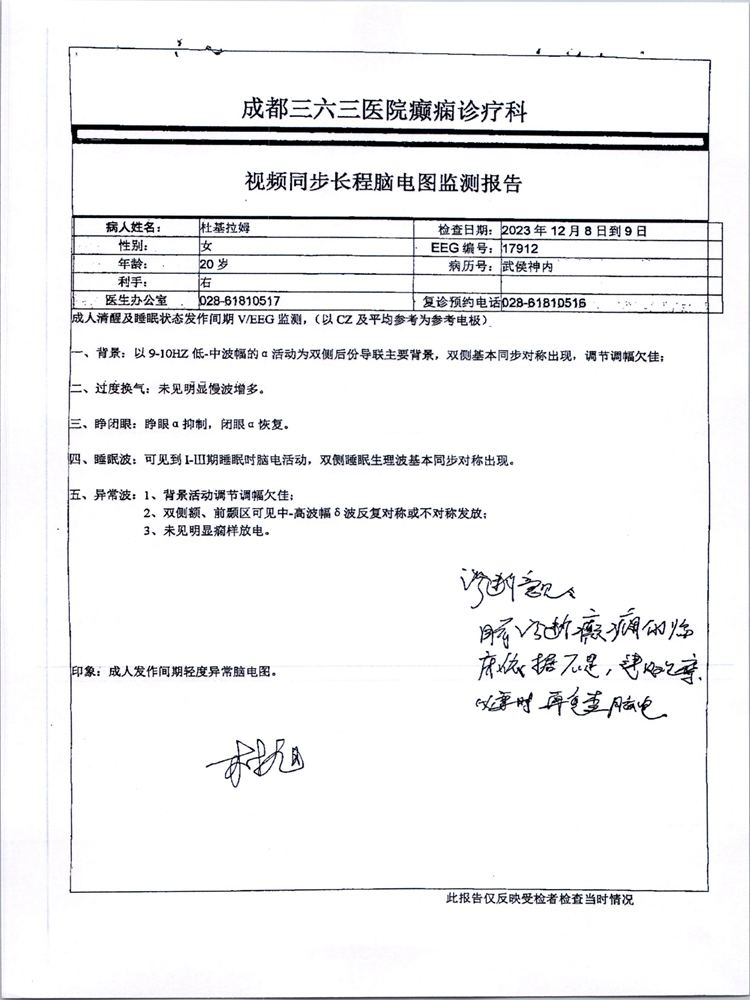 成都三六三医院癫痫诊疗科
视频同步长程脑电图监测报告
病人姓名： 杜基拉姆 检查日期： 2023 年 12 月 8 日到 9 日
性别： 女 EEG 编号： 17912
年龄： 20 岁 病历号： 武侯神内
利手： 右
医生办公室 028-61810517 复诊预约电话 028-61810516
成人清醒及睡眠状态发作间期 V/EEG 监测，（以 CZ 及平均参考为参考电极）
一、背景：以 9-10HZ 低-中波幅的 α 活动为双侧后份导联主要背景，双侧基本同步对称出现，调节调幅欠佳；
二、过度换气：未见明显慢波增多。
三、睁闭眼：睁眼 α 抑制，闭眼 α 恢复。
四、睡眠波：可见到 I-III期睡眠时脑电活动，双侧睡眠生理波基本同步对称出现。
五、异常波：1、背景活动调节调幅欠佳；
2、双侧额、前颞区可见中-高波幅 δ 波反复对称或不对称发放；
3、未见明显痫样放电。
诊断意见：
目前诊断癫痫的临
床依据不足，建议观察
必要时再复查脑电
印象：成人发作间期轻度异常脑电图。
此报告仅反映受检者检查当时情况